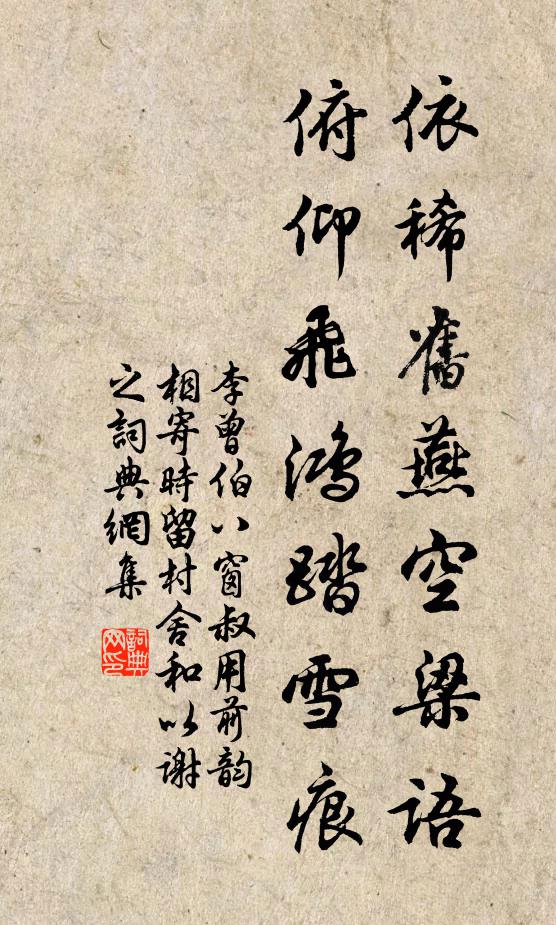 依稀舊燕空梁語
俯仰飛鴻踏雪痕
李曾伯八窗叔用前韵
相寄時留村舍和以謝
之詞典網集
詞典
网印